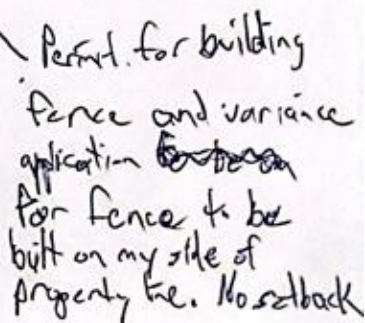 Permit for building
fence and variance
application
for fence to be
built on my side of
property line. No setback